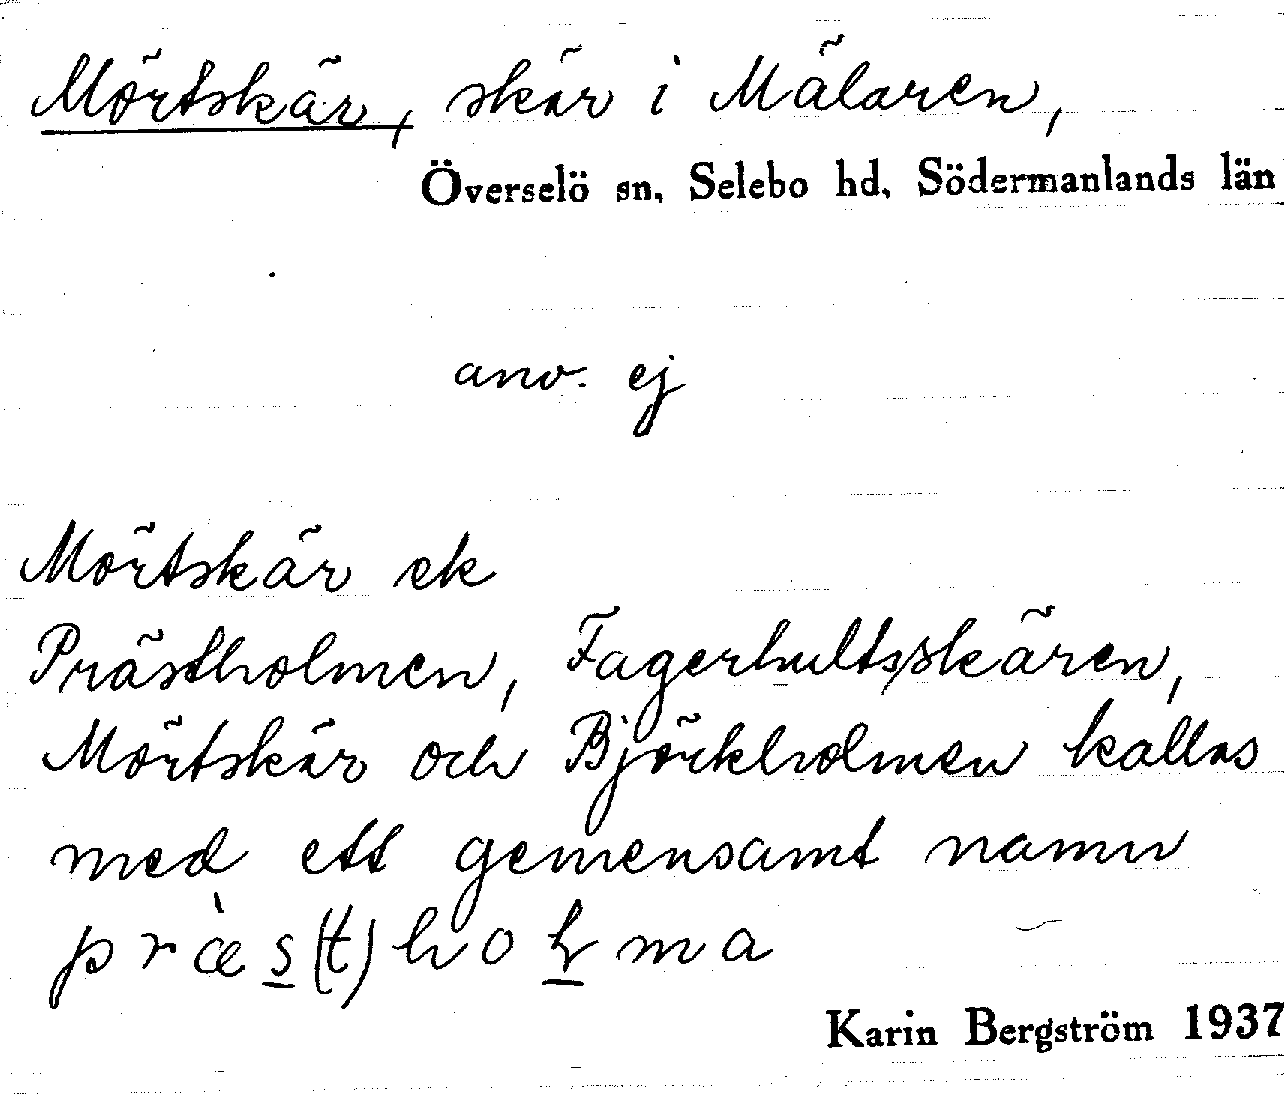 Mörtskär, skär i Mälaren,
Överselö sn, Selebo hd, Södermanlands län
anv. ej
Mörtskär ek
Prästholmen, Fagerhultsskären,
Mörtskär och Björkholmen kallas
med ett gemensamt namn
præ̀s̲(t)hoł̲ma
Karin Bergström 1937